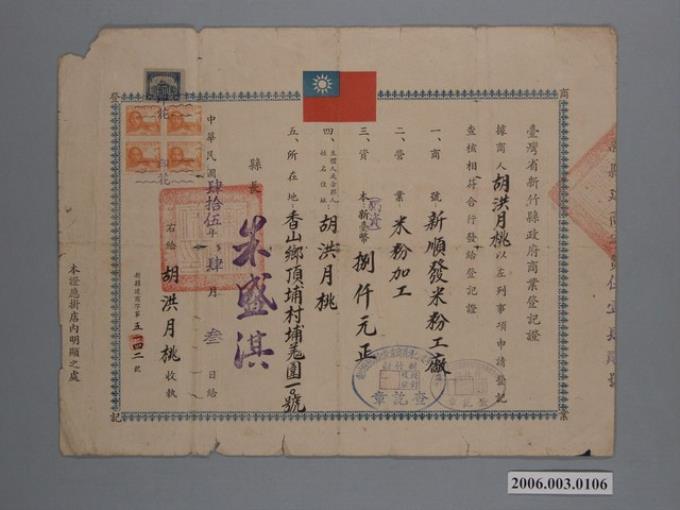 商業登記
臺灣省新竹縣政府商業登記證
據商人胡洪月桃以左列事項申請登記
查核相符合行發給登記證
一、商號：新順發米粉工廠
二、營業：米粉加工
三、資本：新臺幣捌仟元正
四、主體人或合夥人姓名住址：胡洪月桃
五、所在地：香山鄉頂埔村埔羗園一號
縣長 朱盛淇
右給 胡洪月桃 收執
中華民國肆拾伍年肆月叁日給
新縣建商字第五一四二號
本證應掛店內明顯之處
查訖章
登記章
2006.003.0106